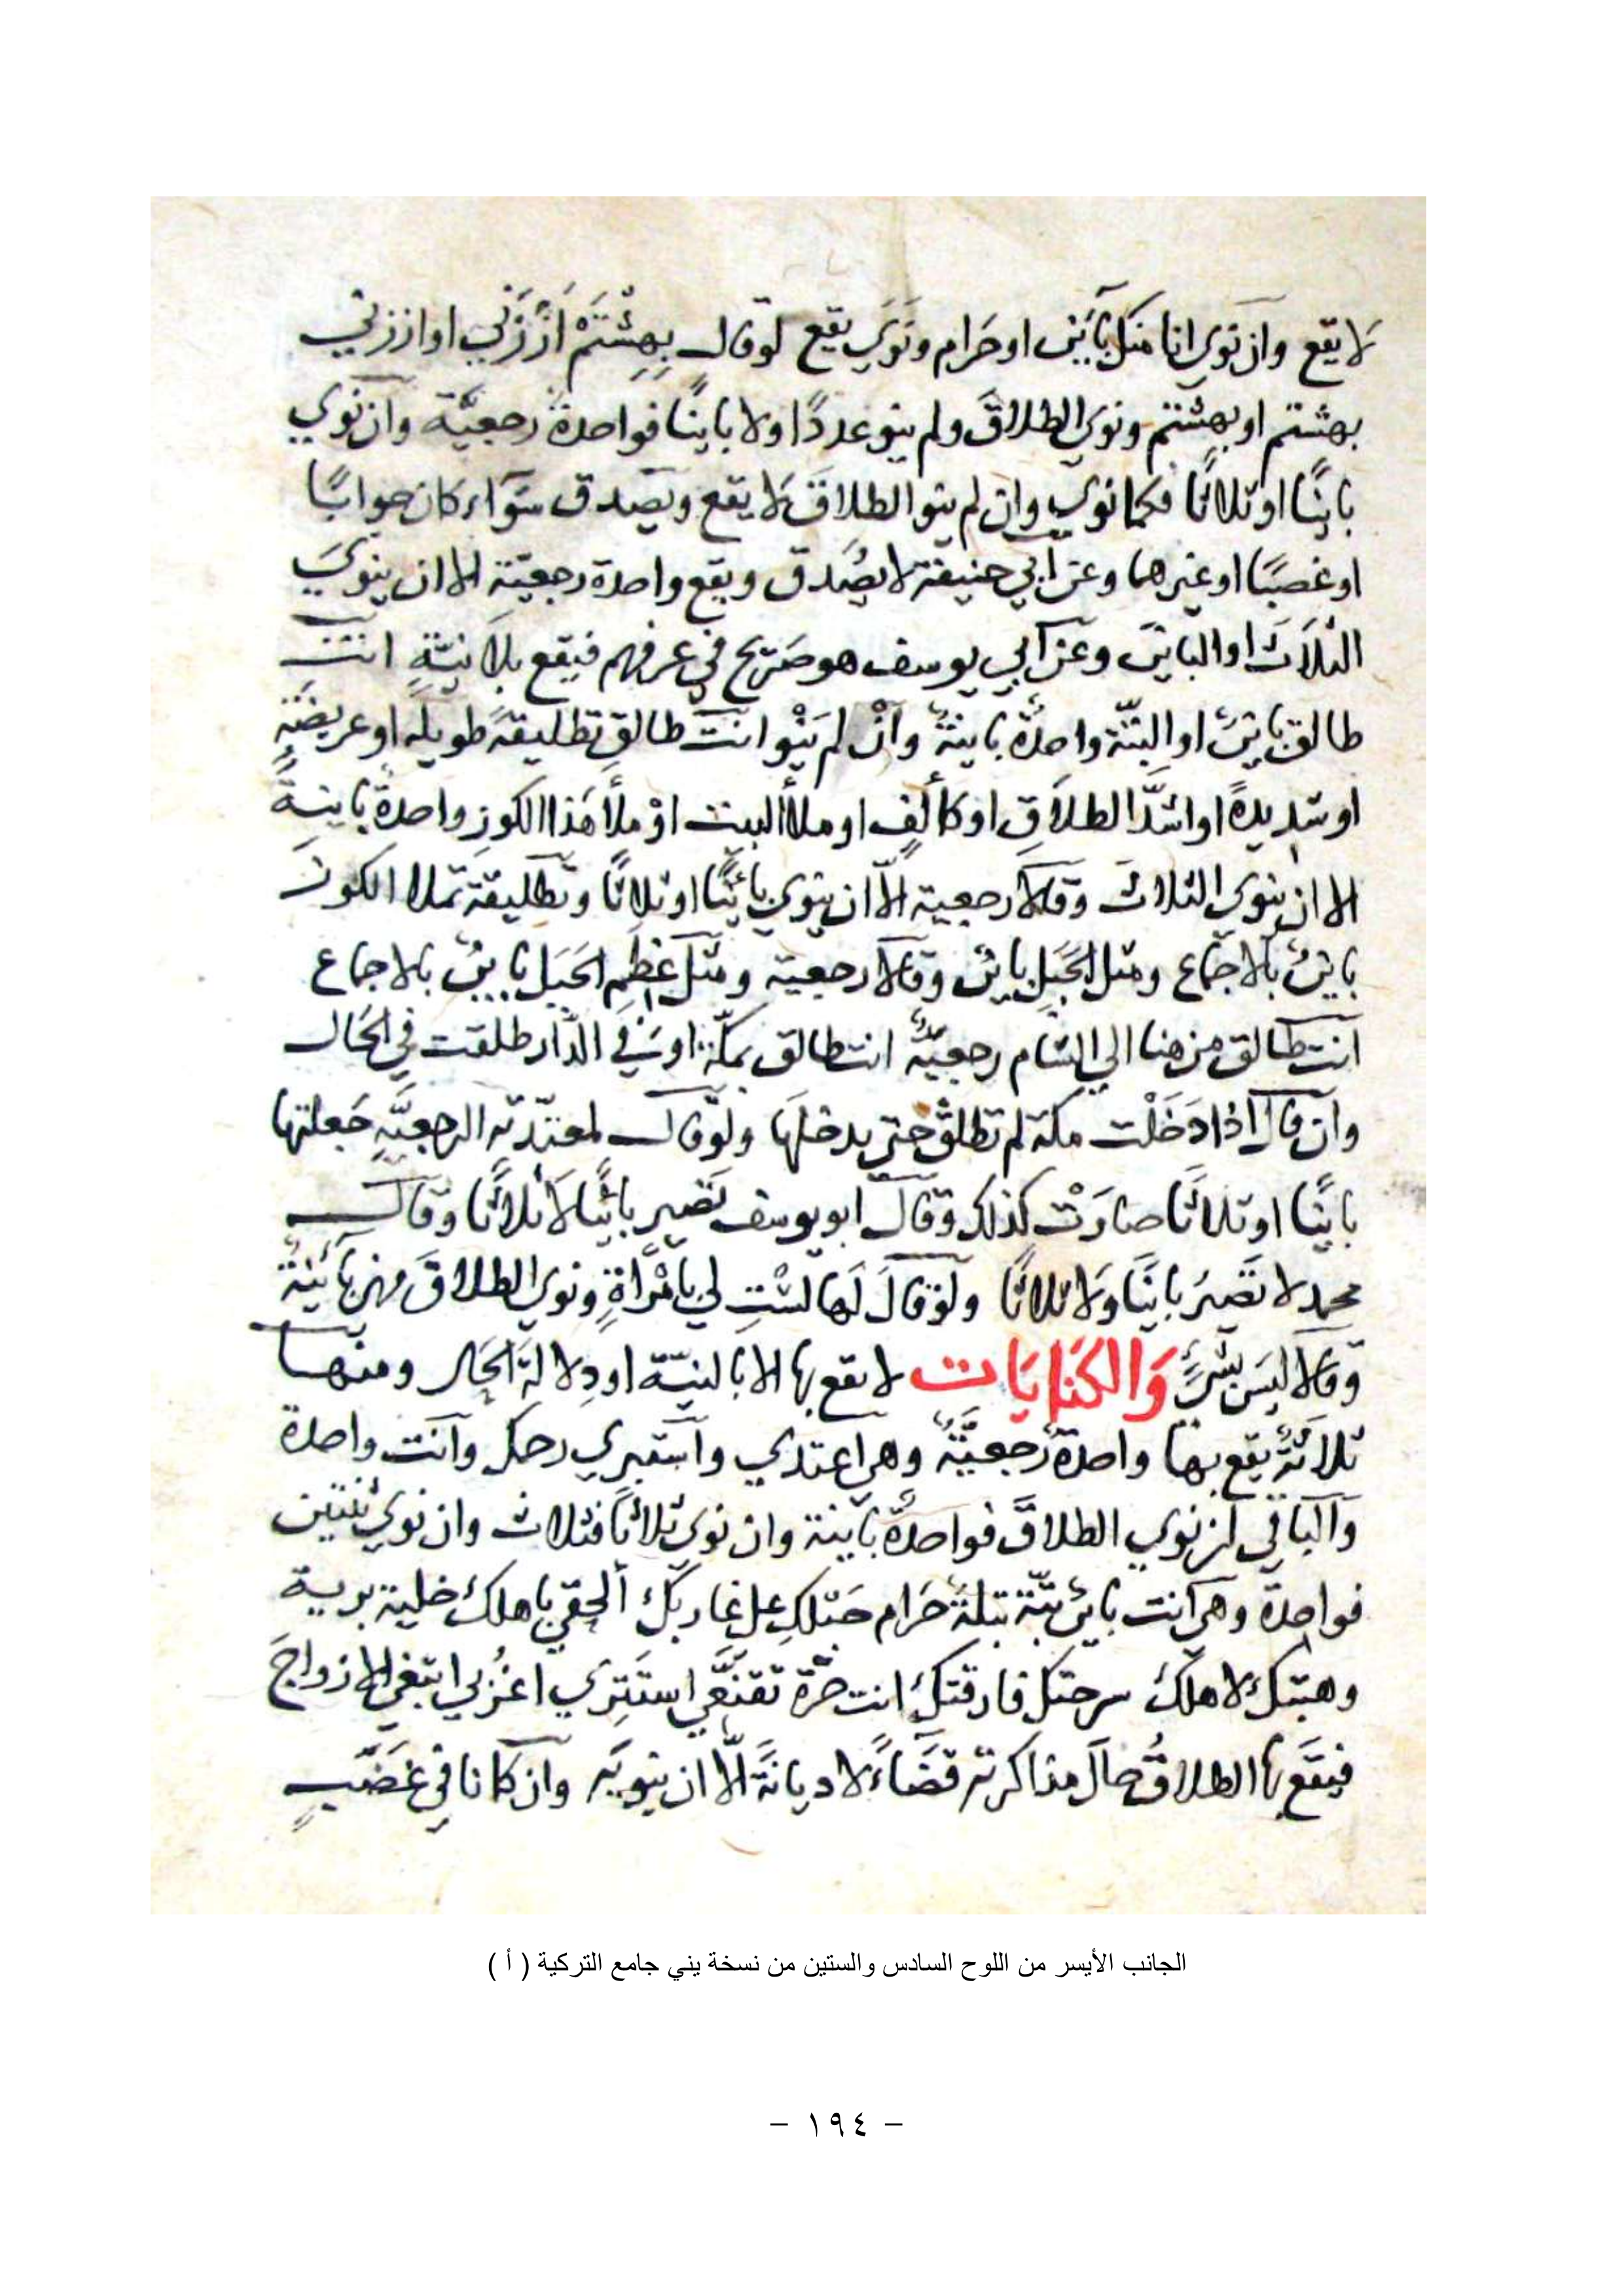 لا يقع وان نوي انا منك بَاين او حَرام ونَوَي يقع لوقال بِهِشْتَمْ اَزْزَني او اززني
بهشتم او بهشتم ونوي الطلاقَ ولم ينو عددًا ولا بايِنًا فواحدة رجعيَّة وان نوي
بايِنًا او ثلاثًا فكما نوي وان لم ينو الطلاقَ لا يقع ويصَدق سَوَاء كان جوابًا
او غصبًا او غيرهما وعن ابي حنيفة لا يصُدق ويقع واحدة رجعيّة الا ان ينويَ
الثلاَثَ او الباينَ وعن ابي يوسف هو صَريح في عرفهم فيقع بلاَ نيَّةٍ انتَ
طالق باينٌ او البتّة واحدةٌ باينةٌ وانْ لم يَنْو انت طالق تطليقةً طويلةً او عريضةً
او شديدةً او اشدَّ الطلاَقِ او كألفٍ او ملأ البيت اوْ ملأ هَذا الكوز واحدةٌ باينةٌ
الا ان ينوي الثلاثَ وقالا رجعية الاّ ان ينوي بائنًا او ثلاثًا وتطليقة تملا الكوز
باينٌ بالاجمَاع ومثل الجَبَلِ باينٌ وقالا رجعية ومثل عِظَمِ الجَبَل باينٌ بالاجماع
انت طالق من هنا الي الشام رجعيَّةٌ انت طالق بمكّة او في الدَّار طلقت في الحَال
وان قال اذا دَخَلْت مكة لم تطلق حتي يدخلَها ولوقال لمعتدّته الرجعيَّةِ جَعلتها
باينًا او ثلاثًا صارَتْ كذلك وقال ابويوسف تَصير بائنًا لاَ ثلاثًا وقال
محمد لا تَصيرُ باينًا وَلا ثلاثًا ولوقالَ لَها لسْتِ لي بامْرَأةٍ ونوي الطلاقَ فهي بَائِنةٌ
وقالا ليسَ بشئٍ وَالكنَايَات لا يقع بها الا بالنيّة او دِلالة الحَال ومنها
ثلاثةٌ يقع بها واحدةٌ رجعيَّةٌ وهي اعتدي واستبري رحمك وانت واحدة
وَالباقي ان نوي الطلاقَ فواحدةٌ باينة وان نوي ثلاثًا فثلاث وان نوي ثنتين
فواحدة وهي انت باين بتّة بتلةٌ حَرام حَبْلكِ علي غاربكِ ألحقي باهلك خلية برية
وهبتك لاهلك سرحتك فارقتك انت حرّة تقنَّعي استَتِري اغرُبي ابتغي الازواجَ
فيقَع بها الطلاقُ حالَ مذاكرته قضَاءً لا ديانةً الاّ ان ينويَه وان كانا في غضَبٍ
الجانب الأيسر من اللوح السادس والستين من نسخة يني جامع التركية ( أ )
- ١٩٤ -